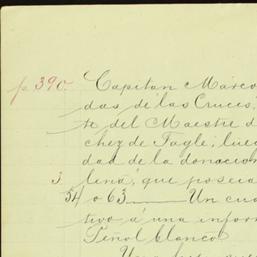 p 390. Capitan Márco
das de las Cruces,
te del Maestre d
chez de Tagle; lue
dad de la donacion
3 lina, que poseia
54 o 63 — Un cua
tivo á una inform
Peñol blanco